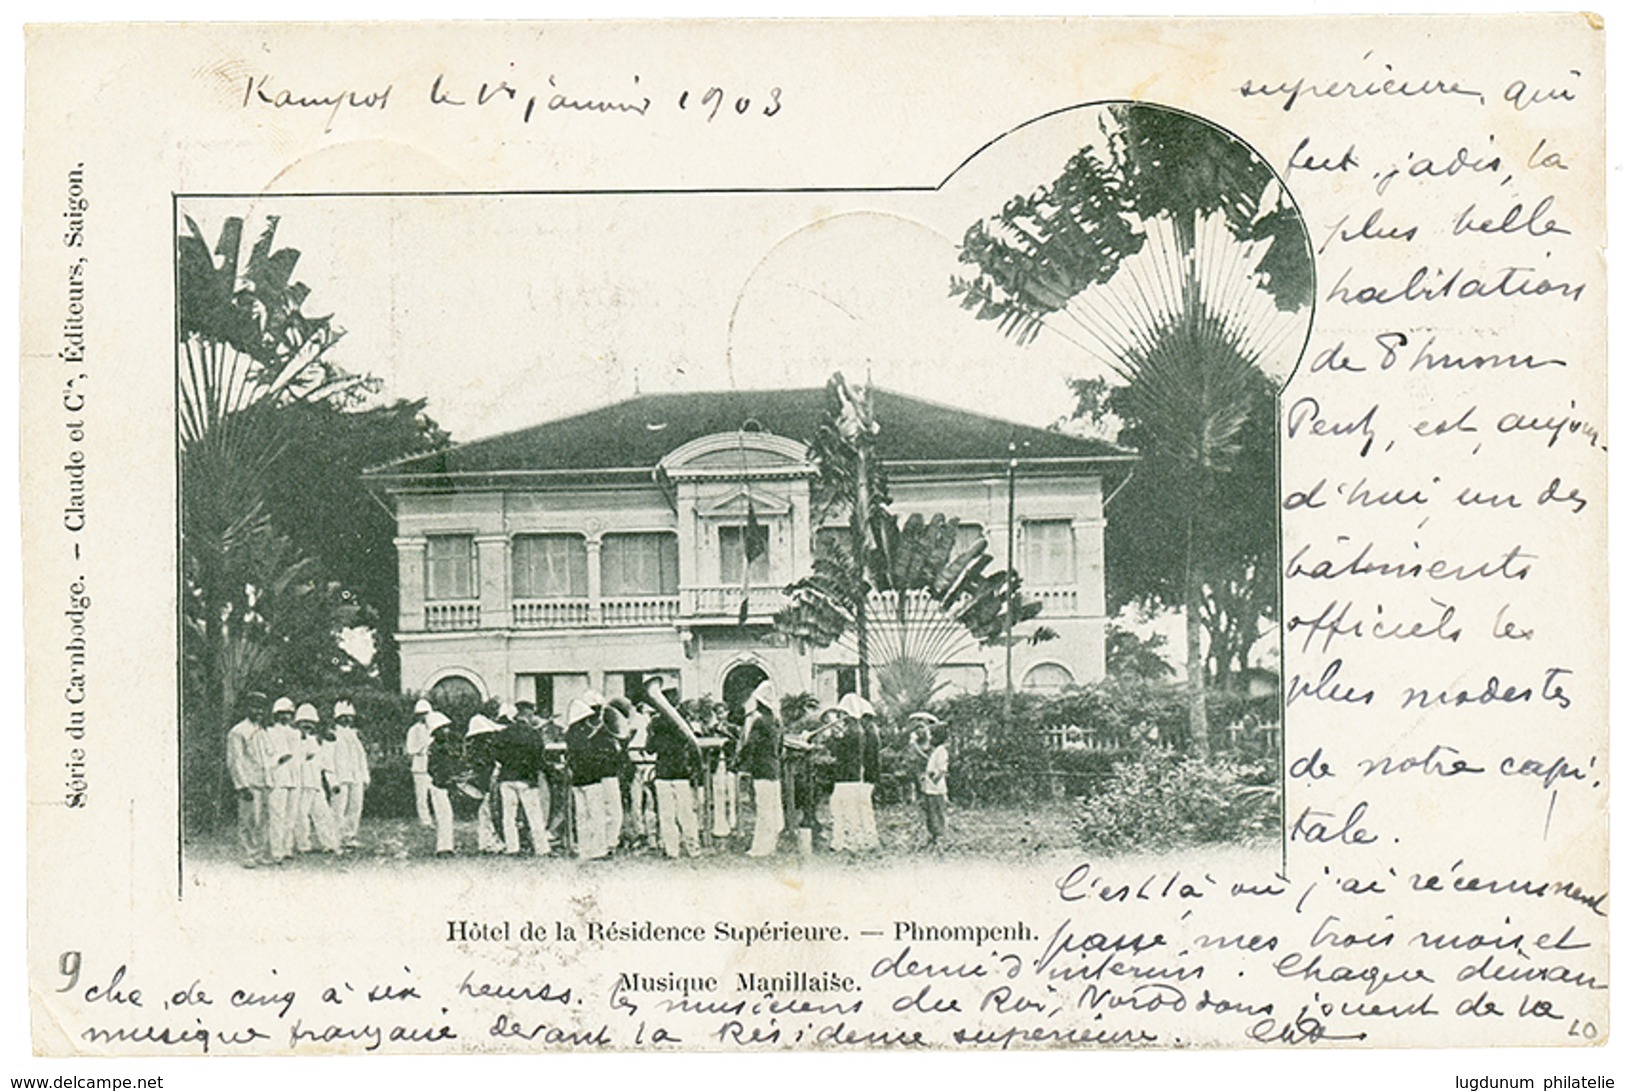 Kampot le 1er janvier 1903
Série du Cambodge. — Claude et Cie, Éditeurs, Saigon.
supérieure, qui
fut, jadis, la
plus belle
habitation
de Phnom
Penh, est, aujour-
d'hui, un des
bâtiments
officiels les
plus modestes
de notre capi-
tale.
C'est là où j'ai récemment
passé mes trois mois et
demi d'intérim. Chaque diman
che, de cinq à six heures. les musiciens du Roi, Noroddom jouent de la
musique française devant la Résidence supérieure.
Hôtel de la Résidence Supérieure. — Phnompenh.
Musique Manillaise.
9
20
www.delcampe.net
lugdunum philatelie